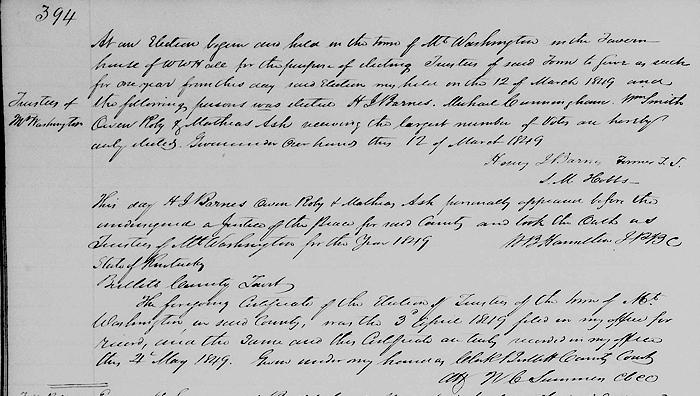 394
At an Election begun and held in the town of Mt Washington in the Tavern
house of W W Hall for the purpose of electing Trustees of said Town to give as such
for one year from this day said Election my held on the 12 of March 1849 and
Trustees of
Mt Washington
the following persons was elected H J Barnes. Michael Cunningham. Wm Smith
Owen Roby & Mathias Ash receiving the largest number of Votes are hereby
duly elected. Given under Our hands this 12 of March 1849
Henry J Barnes Former T. T.
S. M Hobbs
This day H J Barnes Owen Roby & Mathias Ash personally appeared before the
undersigned a Justice of the Peace for said County and took the Oath as
Trustees of Mt Washington for the Year 1849 W B Hamilton J P B C
State of Kentucky
Bullitt County Court
The foregoing Certificate of the Election of Trustees of the town of Mt
Washington in said County, was the 3d April 1849 filed in my office for
record, and the same and this Certificate are duly recorded in my office
this 2d May 1849. Given under my hand as Clerk Bullitt County Court
Att W C Summer